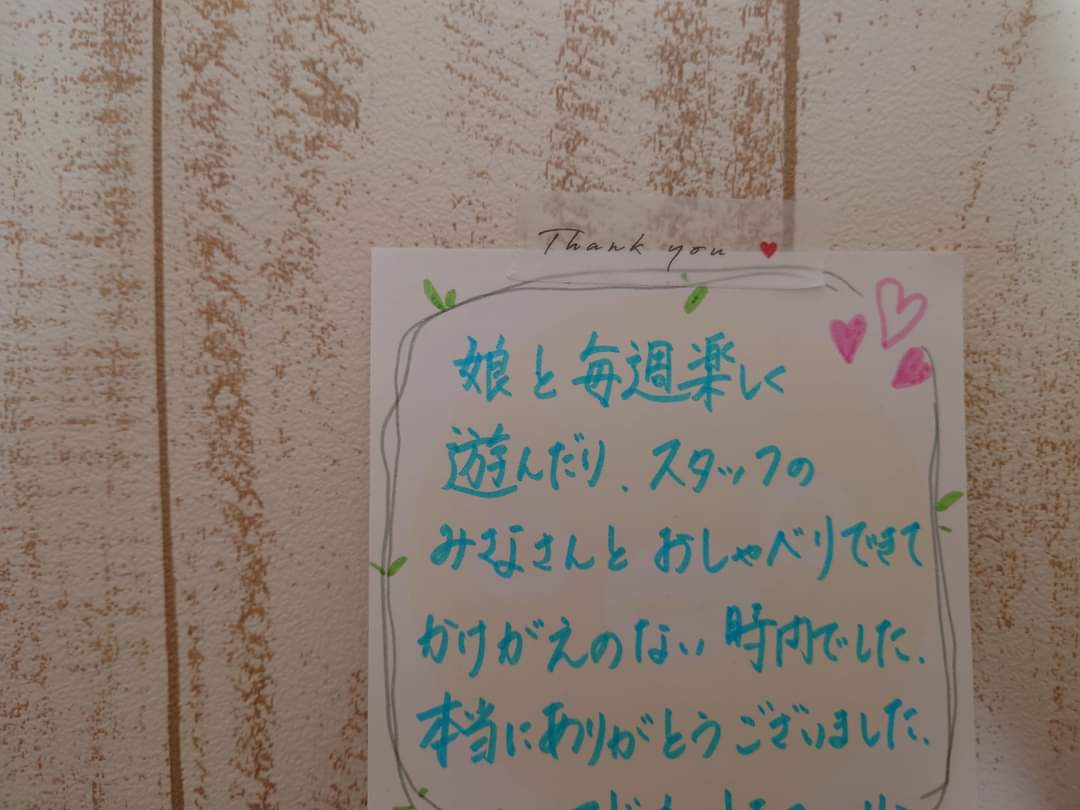 Thank you
娘と毎週楽しく
遊んだり、スタッフの
みなさんとおしゃべりできて
かけがえのない時間でした.
本当にありがとうございました.